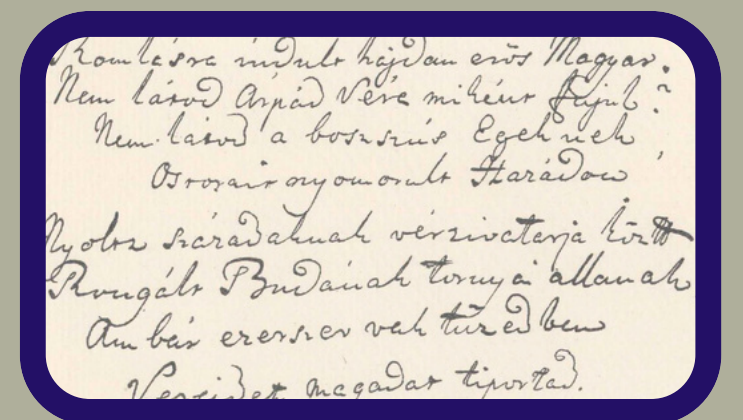 Romlásra indult hajdan erős Magyar.
Nem látod Árpád Vére miként fajul?
Nem látod a boszszús Egeknek
Ostorait nyomorult Hazádon,
Nyoltz századaknak vérzivatarja közt
Rongált Budának tornyai állanak
Ambár ezerszer vak tüzedben
Véreidet magadat tiportad.